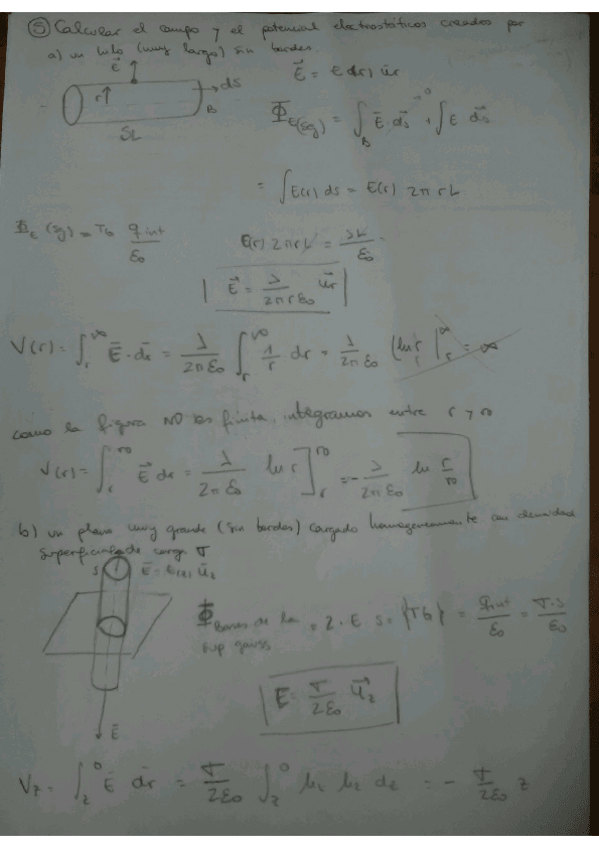 ⑤ Calcular el campo y el potencial electrostáticos creados por
a) un hilo (muy largo) sin bordes.
E⃗
r
dS
B
SL
E⃗ = E(r) u⃗r
Φ_E(sg) = ∫_B E⃗·ds⃗ →0 + ∫ E ds⃗
= ∫ E(r) ds = E(r) 2π r L
Φ_E (sg) = TG q int / ε0
E(r) 2π r L = λL / ε0
E⃗ = λ / 2π r ε0 u⃗r
V(r) = ∫_r^∞ E⃗·dr⃗ = λ / 2π ε0 ∫_r^∞ 1/r dr = λ / 2π ε0 (ln r |_r^∞ = ∞
como la figura NO es finita, integramos entre r y r0
V(r) = ∫_r^r0 E⃗ dr = λ / 2π ε0 ln r ]_r^r0 = - λ / 2π ε0 ln r/r0
b) un plano muy grande (sin bordes) cargado homogeneamente con densidad
superficial de carga σ
S
E⃗ = E(z) u⃗z
Φ Bases de la sup gauss = 2 · E S = {TG} = q int / ε0 = σ·S / ε0
E = σ / 2ε0 u⃗z
E⃗
Vz = ∫_z^0 E⃗ dr⃗ = σ / 2ε0 ∫_z^0 uz uz dz = - σ / 2ε0 z